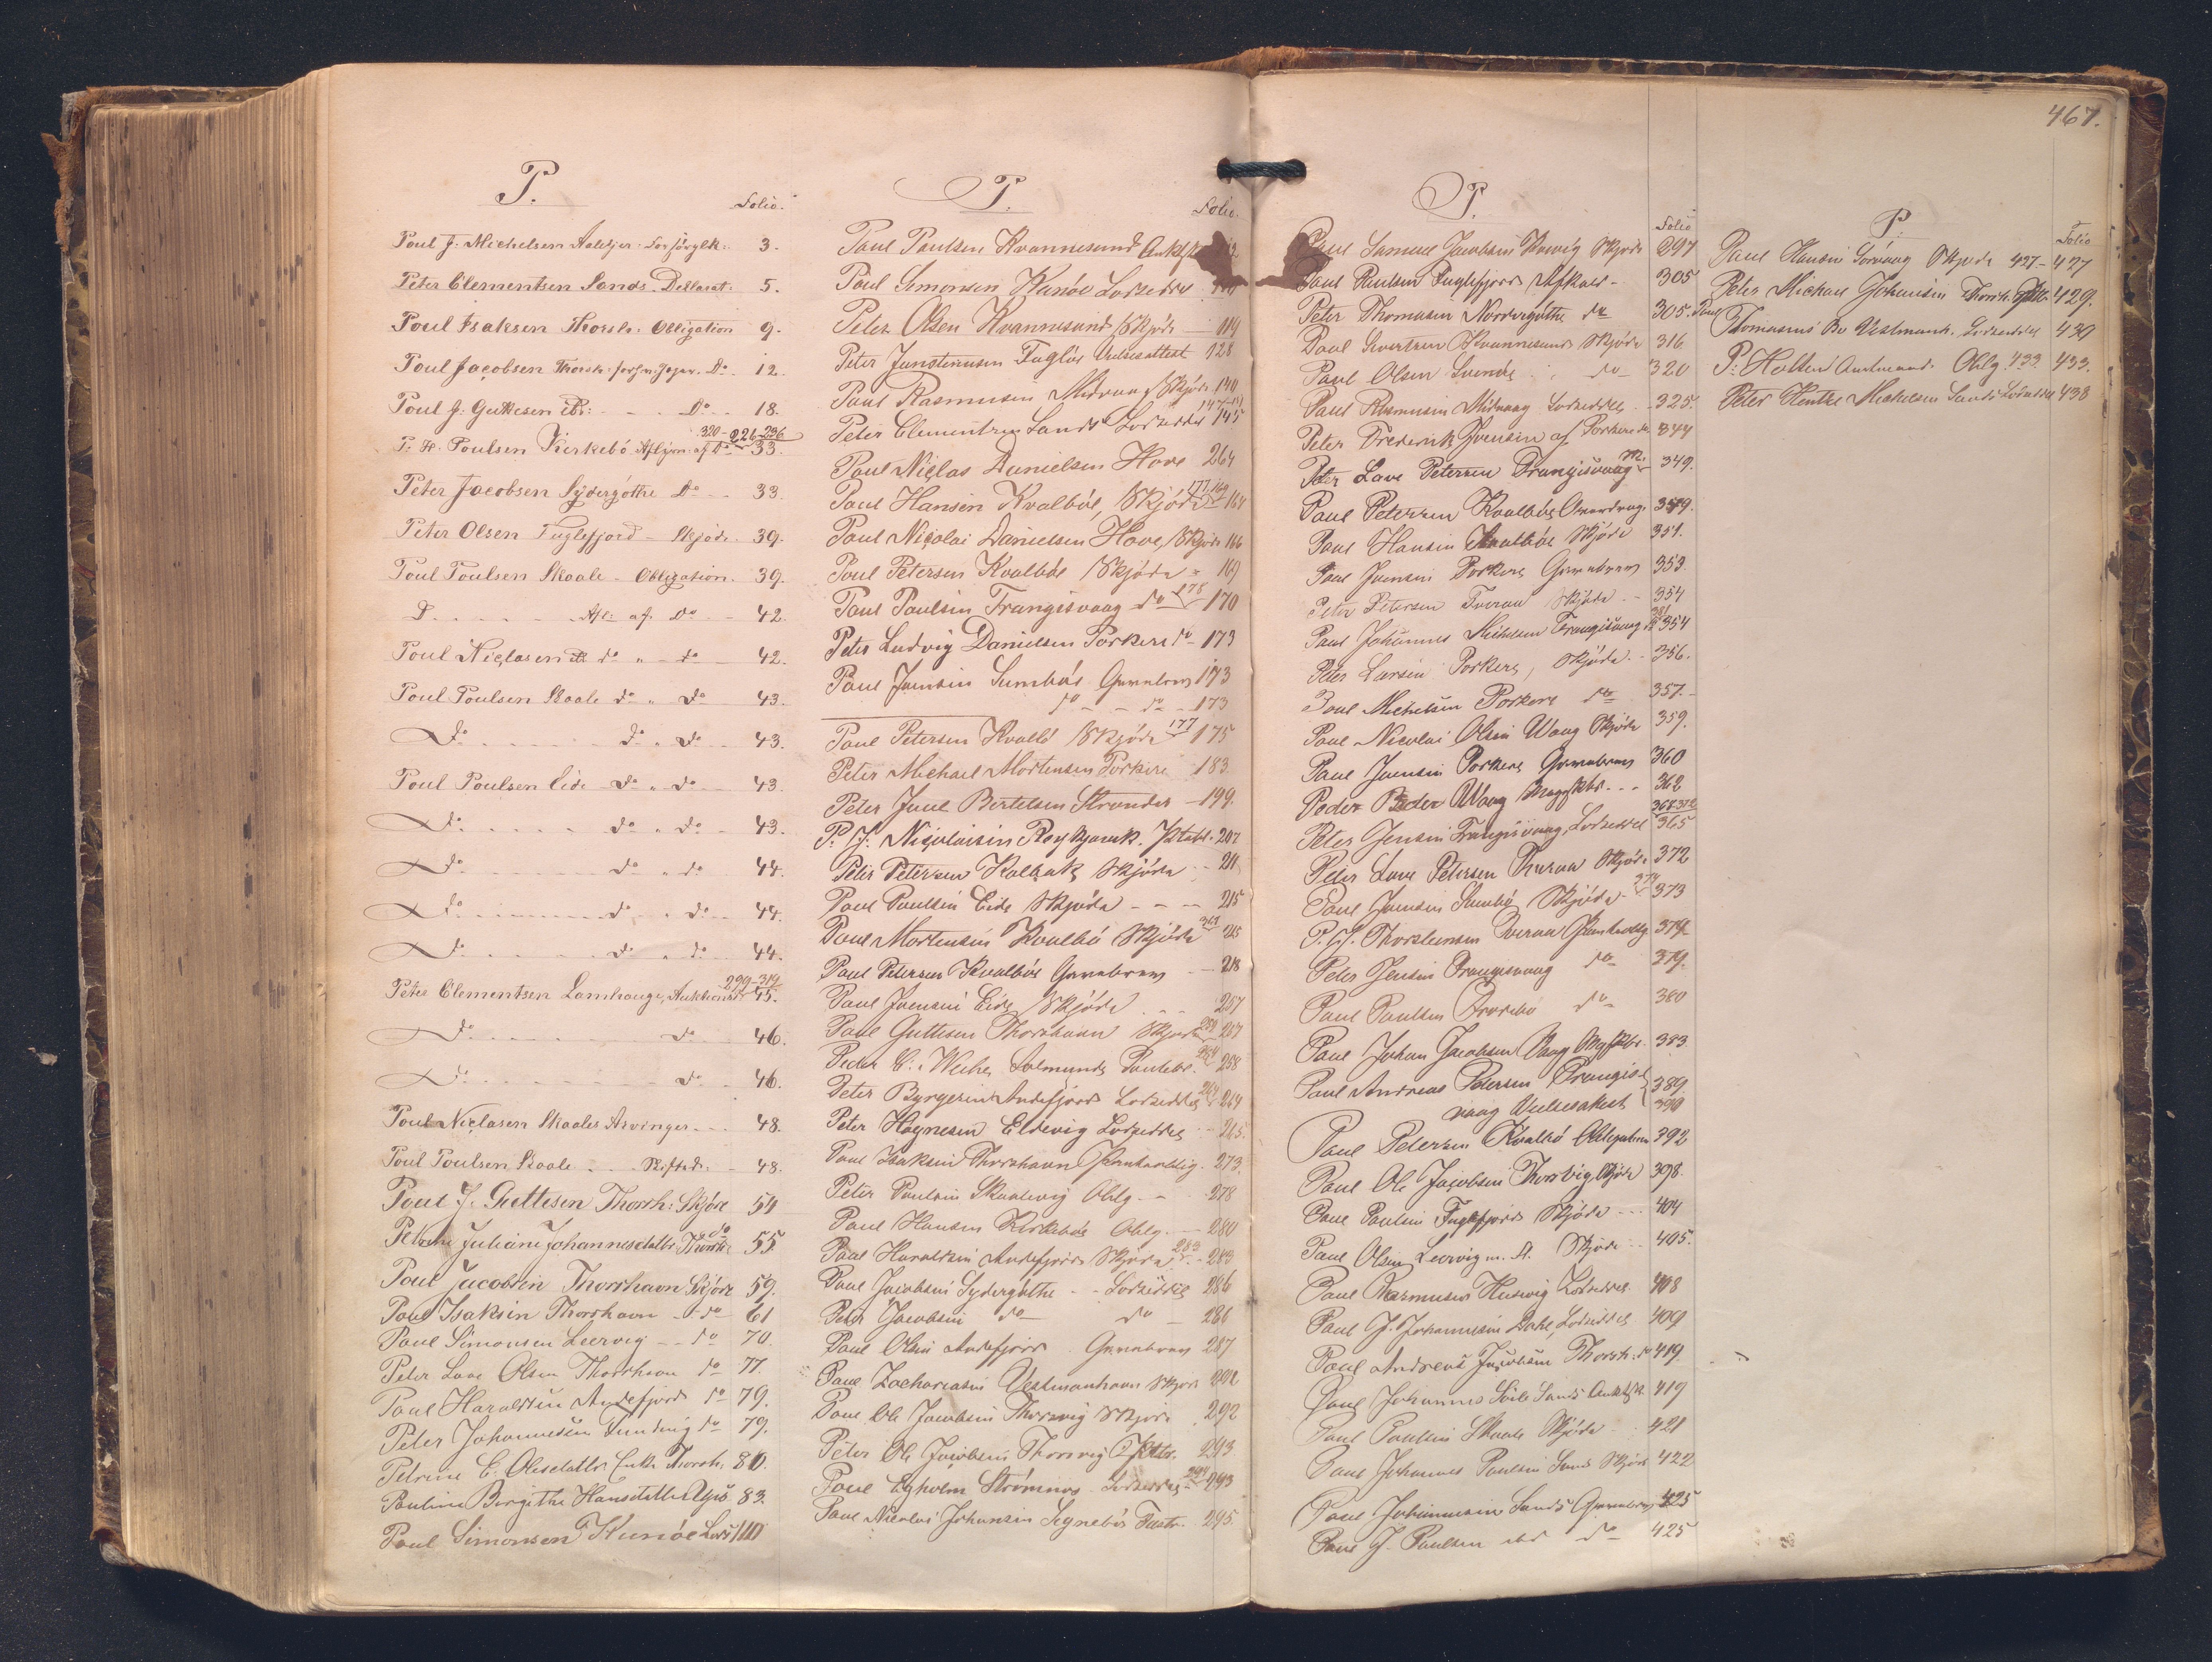 467.
P.
Folio.
Poul J. Michelsen 3.
Peter Clementsen Sands. Deklarat: 5.
Poul Isaksen Thorsh: Obligation 9.
Poul Jacobsen Thorsh: Do. 12.
Poul J. Guttesen ibd: - - Do - 18.
320-226-236
P. H. Poulsen Kirkebö Aflysn: af Do 33.
Peter Jacobsen Sydergöthe Do - - 33.
Peter Olsen Fuglefjord - Skjöde. 39.
Poul Poulsen Skaale - Obligation. 39.
D. - - - Afl: af Do - - 42.
Poul Niclasen do " - do 42.
Poul Poulsen Skaale do " Do 43.
Do - - - Do " Do - 43.
Poul Poulsen Eide - Do " Do 43.
Do - - - Do " Do - 43.
Do - - - Do " Do 44.
Do - - - Do " Do - 44.
Do - - - Do " Do 44.
299-314
Peter Clementsen Lamhauge, Auktionssk. 45.
Do - - - Do 46.
Do - - - Do 46.
Poul Niclasen Skaales Arvinger - - 48.
Poul Poulsen Skaale - - Skiftesk: - 48.
Poul J. Guttesen Thorsh: Skjöde 54
do
Petrine Juliane Johannesdatter Thorsh: 55.
Poul Jacobsen Thorshavn Skjöde 59.
Poul Isaksen Thorshavn - do 61
Poul Simonsen Leervig - - do 70.
Peter Lave Olsen Thorshavn do 77.
Poul Haraldsen Andefjord do 79.
Peter Johannesen Funding do 79.
Petrine C. Olesdatter Enke Thorsh. 80.
Pauline Birgithe Hansdatter 83.
Poul Simonsen Kunöe 110
P.
Folio.
Paul Paulsen Kvannesund
Poul Simonsen Kunöe Lodseddel
Peter Olsen Kvannesund Skjöde - 119
Peter Junstinussen Fuglöe Vielsesattest 128
Paul Rasmussen Midvaag Skjöde 140
Peter Clementsen Sands Lodseddel 145
Paul Niclas Danielsen Hove 264
Paul Hansen Kvalböe, Skjöde 164
Paul Nicolai Danielsen Hove, Skjöde 166
Poul Petersen Kvalböe Skjöde - 169
Paul Paulsen Trangisvaag do 178 170
Peter Ludvig Danielsen Porkere do - 173
Paul Joensen Sumböe Gavebrev 173
do - - do - 173
Paul Petersen Kvalbö Skjöde 177 175
Peter Michael Mortensen Porkere 183.
Peter Juul Bertelsen Strender - 199.
P. J. Nicolaisen 207
Peter Petersen Kolbak Skjöde - - 211
Paul Paulsen Eide Skjöde - - - 215
Paul Mortensen Kvalbö Skjöde 215
Paul Petersen Kvalböe Gavebrev - - 218
Paul Joensen Eide Skjöde - - 257
Paul Guttesen Thorshavn Skjöde 257
Peder C. Weihe Solmunde Pantebr. 258
Peter Byrgesen Andefjord Lodseddel 264
Peter Hognesen Eldevig Lodseddel - 265.
Paul Isaksen Thorshavn Pantoblig. 273.
Peter Paulsen Skaalevig Oblg. - - 278
Paul Hansen Kirkeböe Oblg. - 280
Paul Haraldsen Andefjord Skjöde 283 - 283
Paul Jacobsen Sydergöthe - - Lodseddel 286
Peter Jacobsen do - do - 286
Paul Olsen Andefjord Gavebrev 287
Paul Zachariasen Vestmanhavn Skjöde 292
Paul Ole Jacobsen Thorsvig Skjöde 292
Peter Ole Jacobsen Thorsvig 293
Poul Egholm Strömnæs Lodseddel 294 293
Paul Nicolai Johansen Segneböe 295.
P.
Folio
Paul Samuel Jacobsen Skjöde 297
Paul Paulsen Fuglefjord Afkald - 305
Peter Thomasen Norderigöthe do 305.
Paul Sivertsen Kvannesund Skjöde 316
Paul Olsen Svinöe - do - 320
Paul Rasmussen Midvaag Lodseddel 325.
Peter Frederik Joensen af Porkere do. 344
Peter Lave Petersen Trangisvaag 349.
Paul Petersen Kvalböe 349.
Paul Hansen Kvalböe Skjöde 351.
Paul Joensen Porkere Gavebrev 353.
Peter Petersen Tveraa Skjöde - - 354
Paul Johannes Michelsen Trangisvaag 354
Peter Larsen Porkere, Skjöde - 356.
Paul Michelsen Porkere do 357.
Paul Nicolai Olsen Waag Skjöde 359.
Paul Joensen Porkere Gavebrev 360
Peder Peder Waag - - - 362
Peter Jensen Trangisvaag, Lodseddel 365
Peter Lave Petersen Tveraa Skjöde 372
Paul Joensen Sumbö, Skjöde 374 373
P. J. Thorsteinsen Tveraa Panteoblg 374
Peter Jensen Trangisvaag do 379.
Paul Paulsen do 380
Paul Johan Jacobsen Vaag 383.
Paul Andreas Petersen Trangis- 389
vaag Vielsesattest 390
Paul Petersen Kvalbö Obligation 392
Paul Ole Jacobsen Thorsvig, Skjöde 398.
Paul Paulsen Fuglefjord Skjöde - - - 404
Paul Olsen Leervig m. fl. Skjöde - - 405.
Paul Rasmussen Husevig Lodseddel 408
Paul J. Johannesen Dahl, Lodseddel 409
Paul Andreas Jacobsen Thorsh. do 419
Paul Johannes Sands 419
Paul Paulsen Skaale Skjöde 421
Paul Johannes Paulsen Sands Skjöde 422
Paul Johannesen Sands Gavebrev 425
Paul J. Paulsen ibd do 425
P.
Folio
Paul Hansen Sörvaag Skjöde 427 - 427
Peter Michael Johansen Thorsh. 429.
Paul Thomasens Bo Vestmanh. Lodseddel 430
P. Holten Amtmand. Oblg. 433. 433.
Peter Hentze Michelsen Sands Lodseddel 438